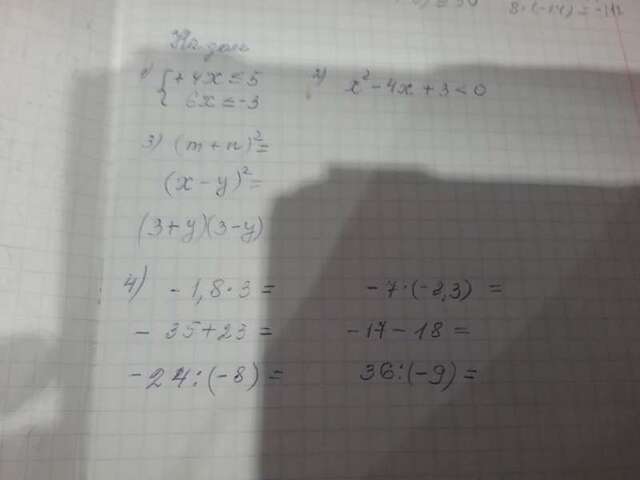 8·(-14) = -112
На дом
1) { +4x ≤ 5
6x ≤ -3
2) x² - 4x + 3 < 0
3) (m+n)² =
(x-y)² =
(3+y)(3-y)
4) -1,8·3 =
-7·(-2,3) =
- 35+23 =
-17-18 =
-24:(-8) =
36:(-9) =